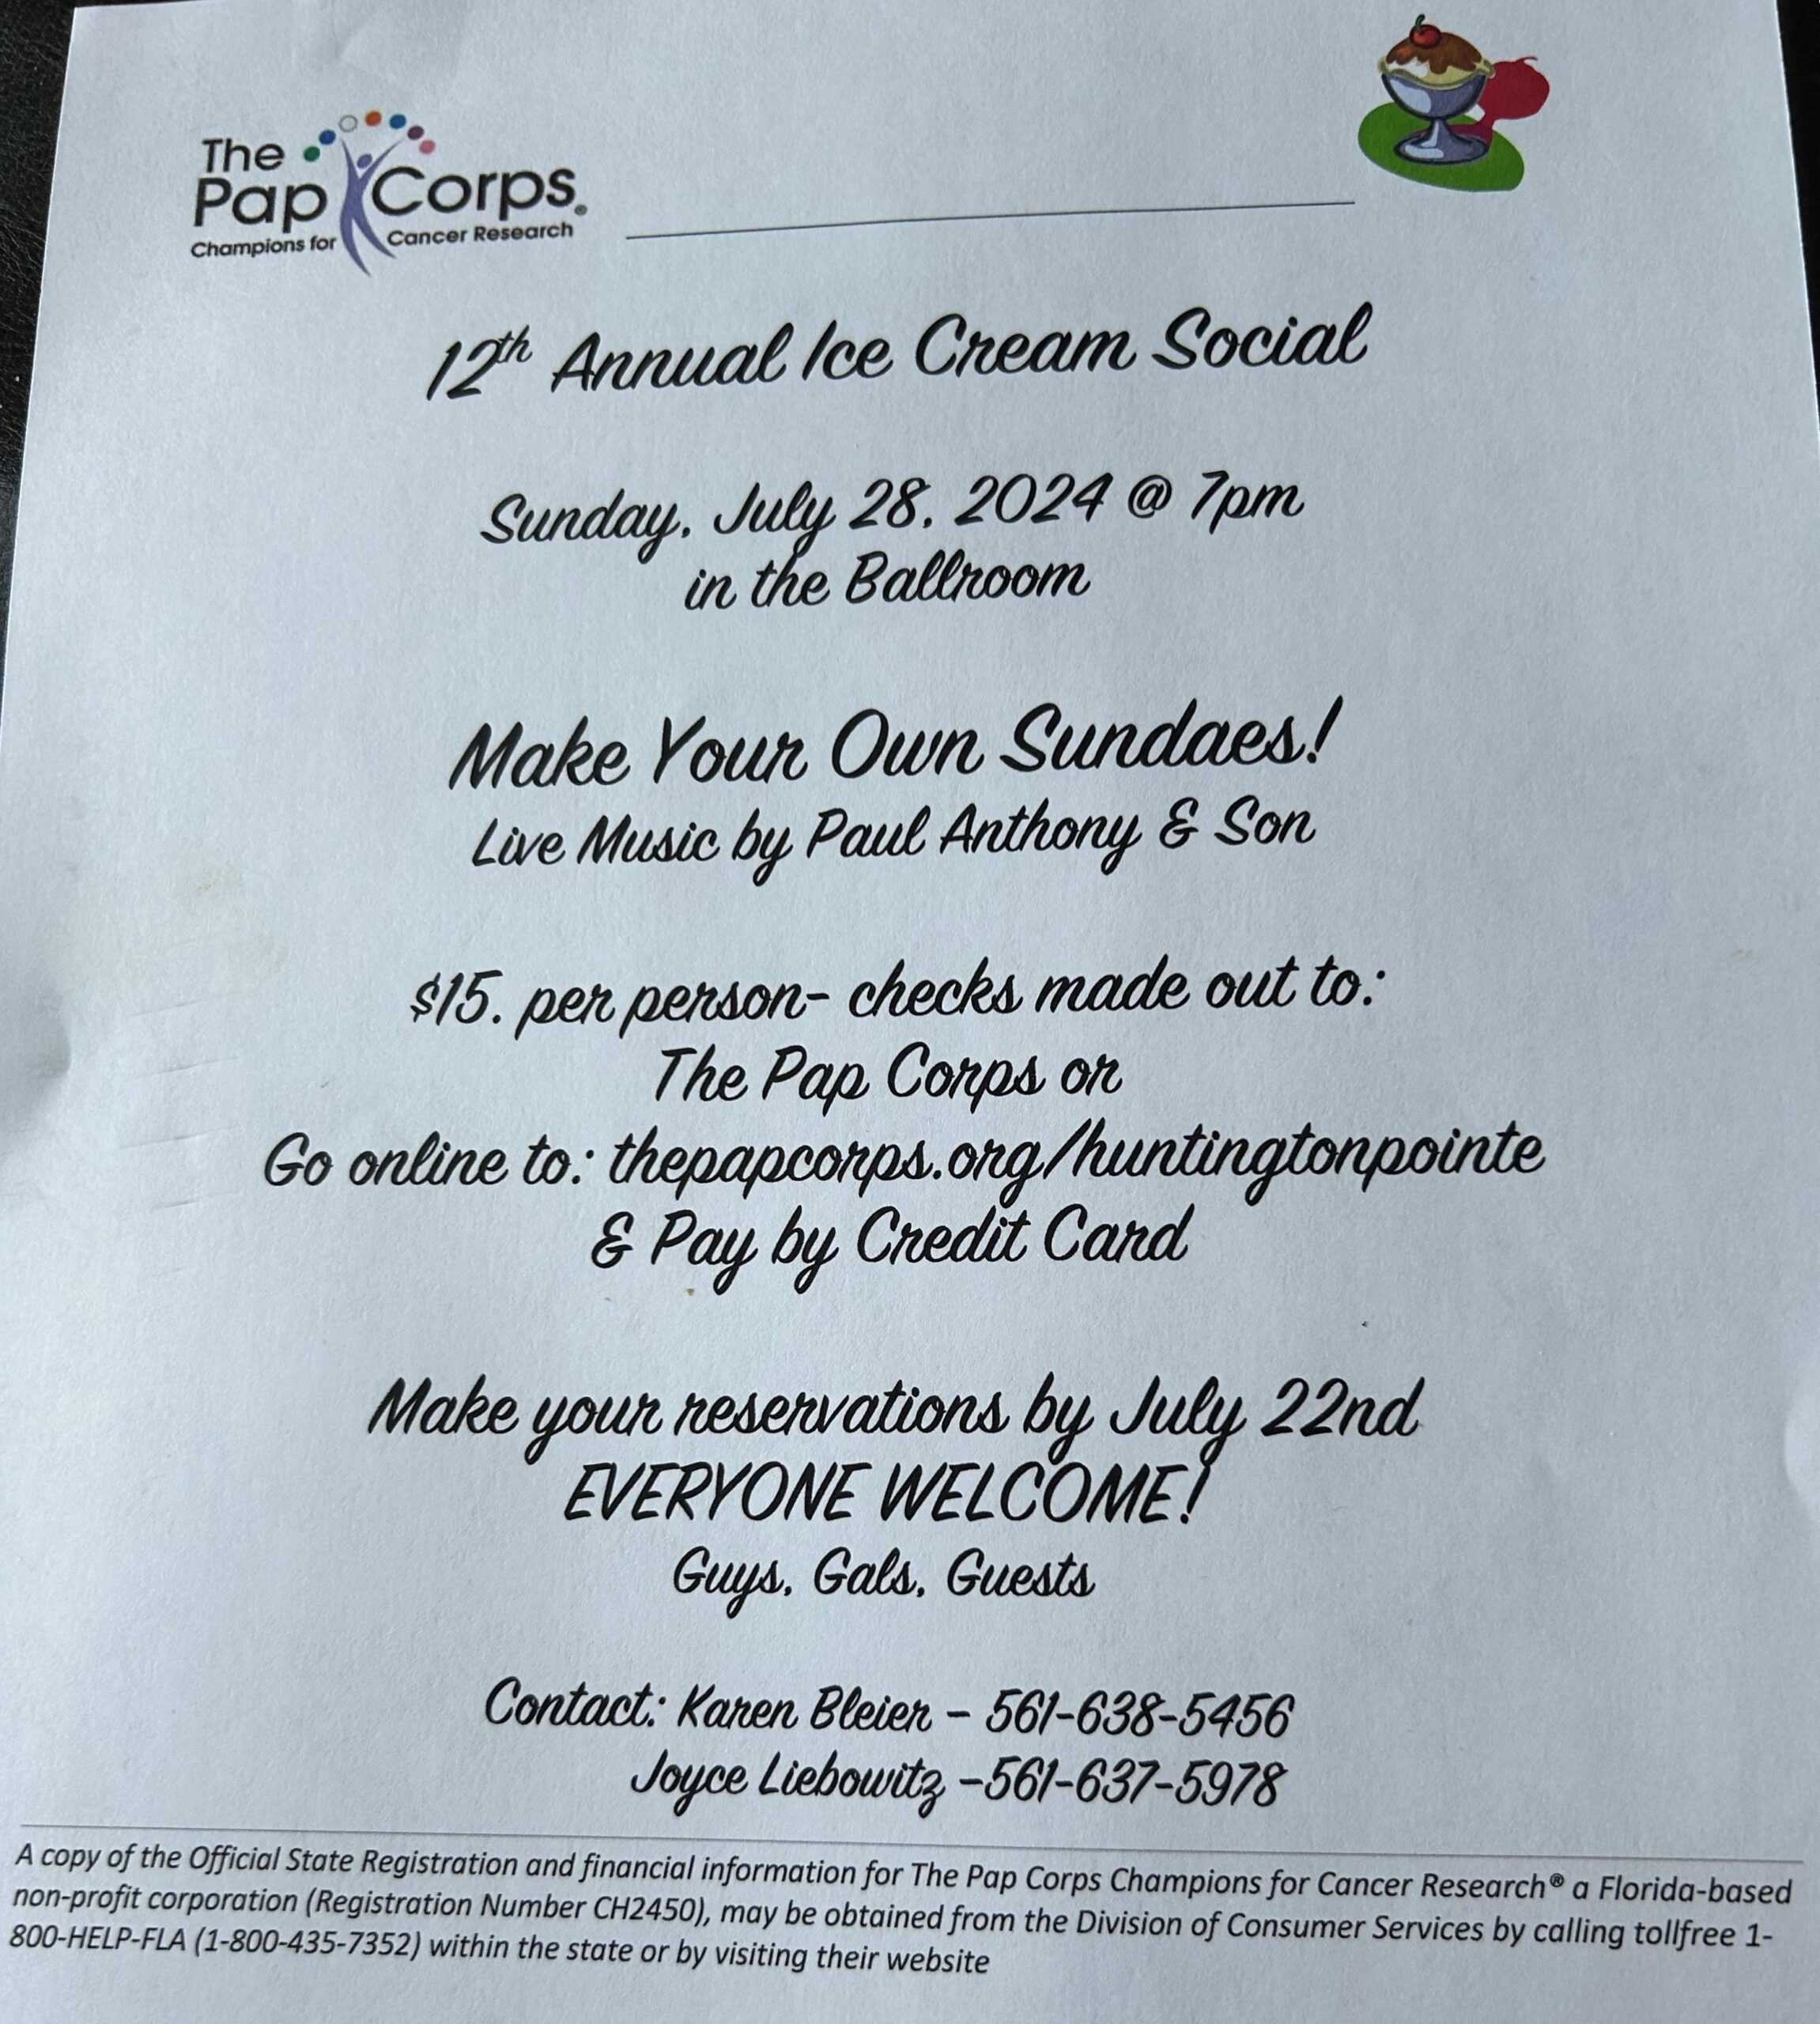 The
Pap Corps®
Champions for Cancer Research
12th Annual Ice Cream Social
Sunday, July 28, 2024 @ 7pm
in the Ballroom
Make Your Own Sundaes!
Live Music by Paul Anthony & Son
$15. per person- checks made out to:
The Pap Corps or
Go online to: thepapcorps.org/huntingtonpointe
& Pay by Credit Card
Make your reservations by July 22nd
EVERYONE WELCOME!
Guys, Gals, Guests
Contact: Karen Bleier - 561-638-5456
Joyce Liebowitz -561-637-5978
A copy of the Official State Registration and financial information for The Pap Corps Champions for Cancer Research® a Florida-based
non-profit corporation (Registration Number CH2450), may be obtained from the Division of Consumer Services by calling tollfree 1-
800-HELP-FLA (1-800-435-7352) within the state or by visiting their website